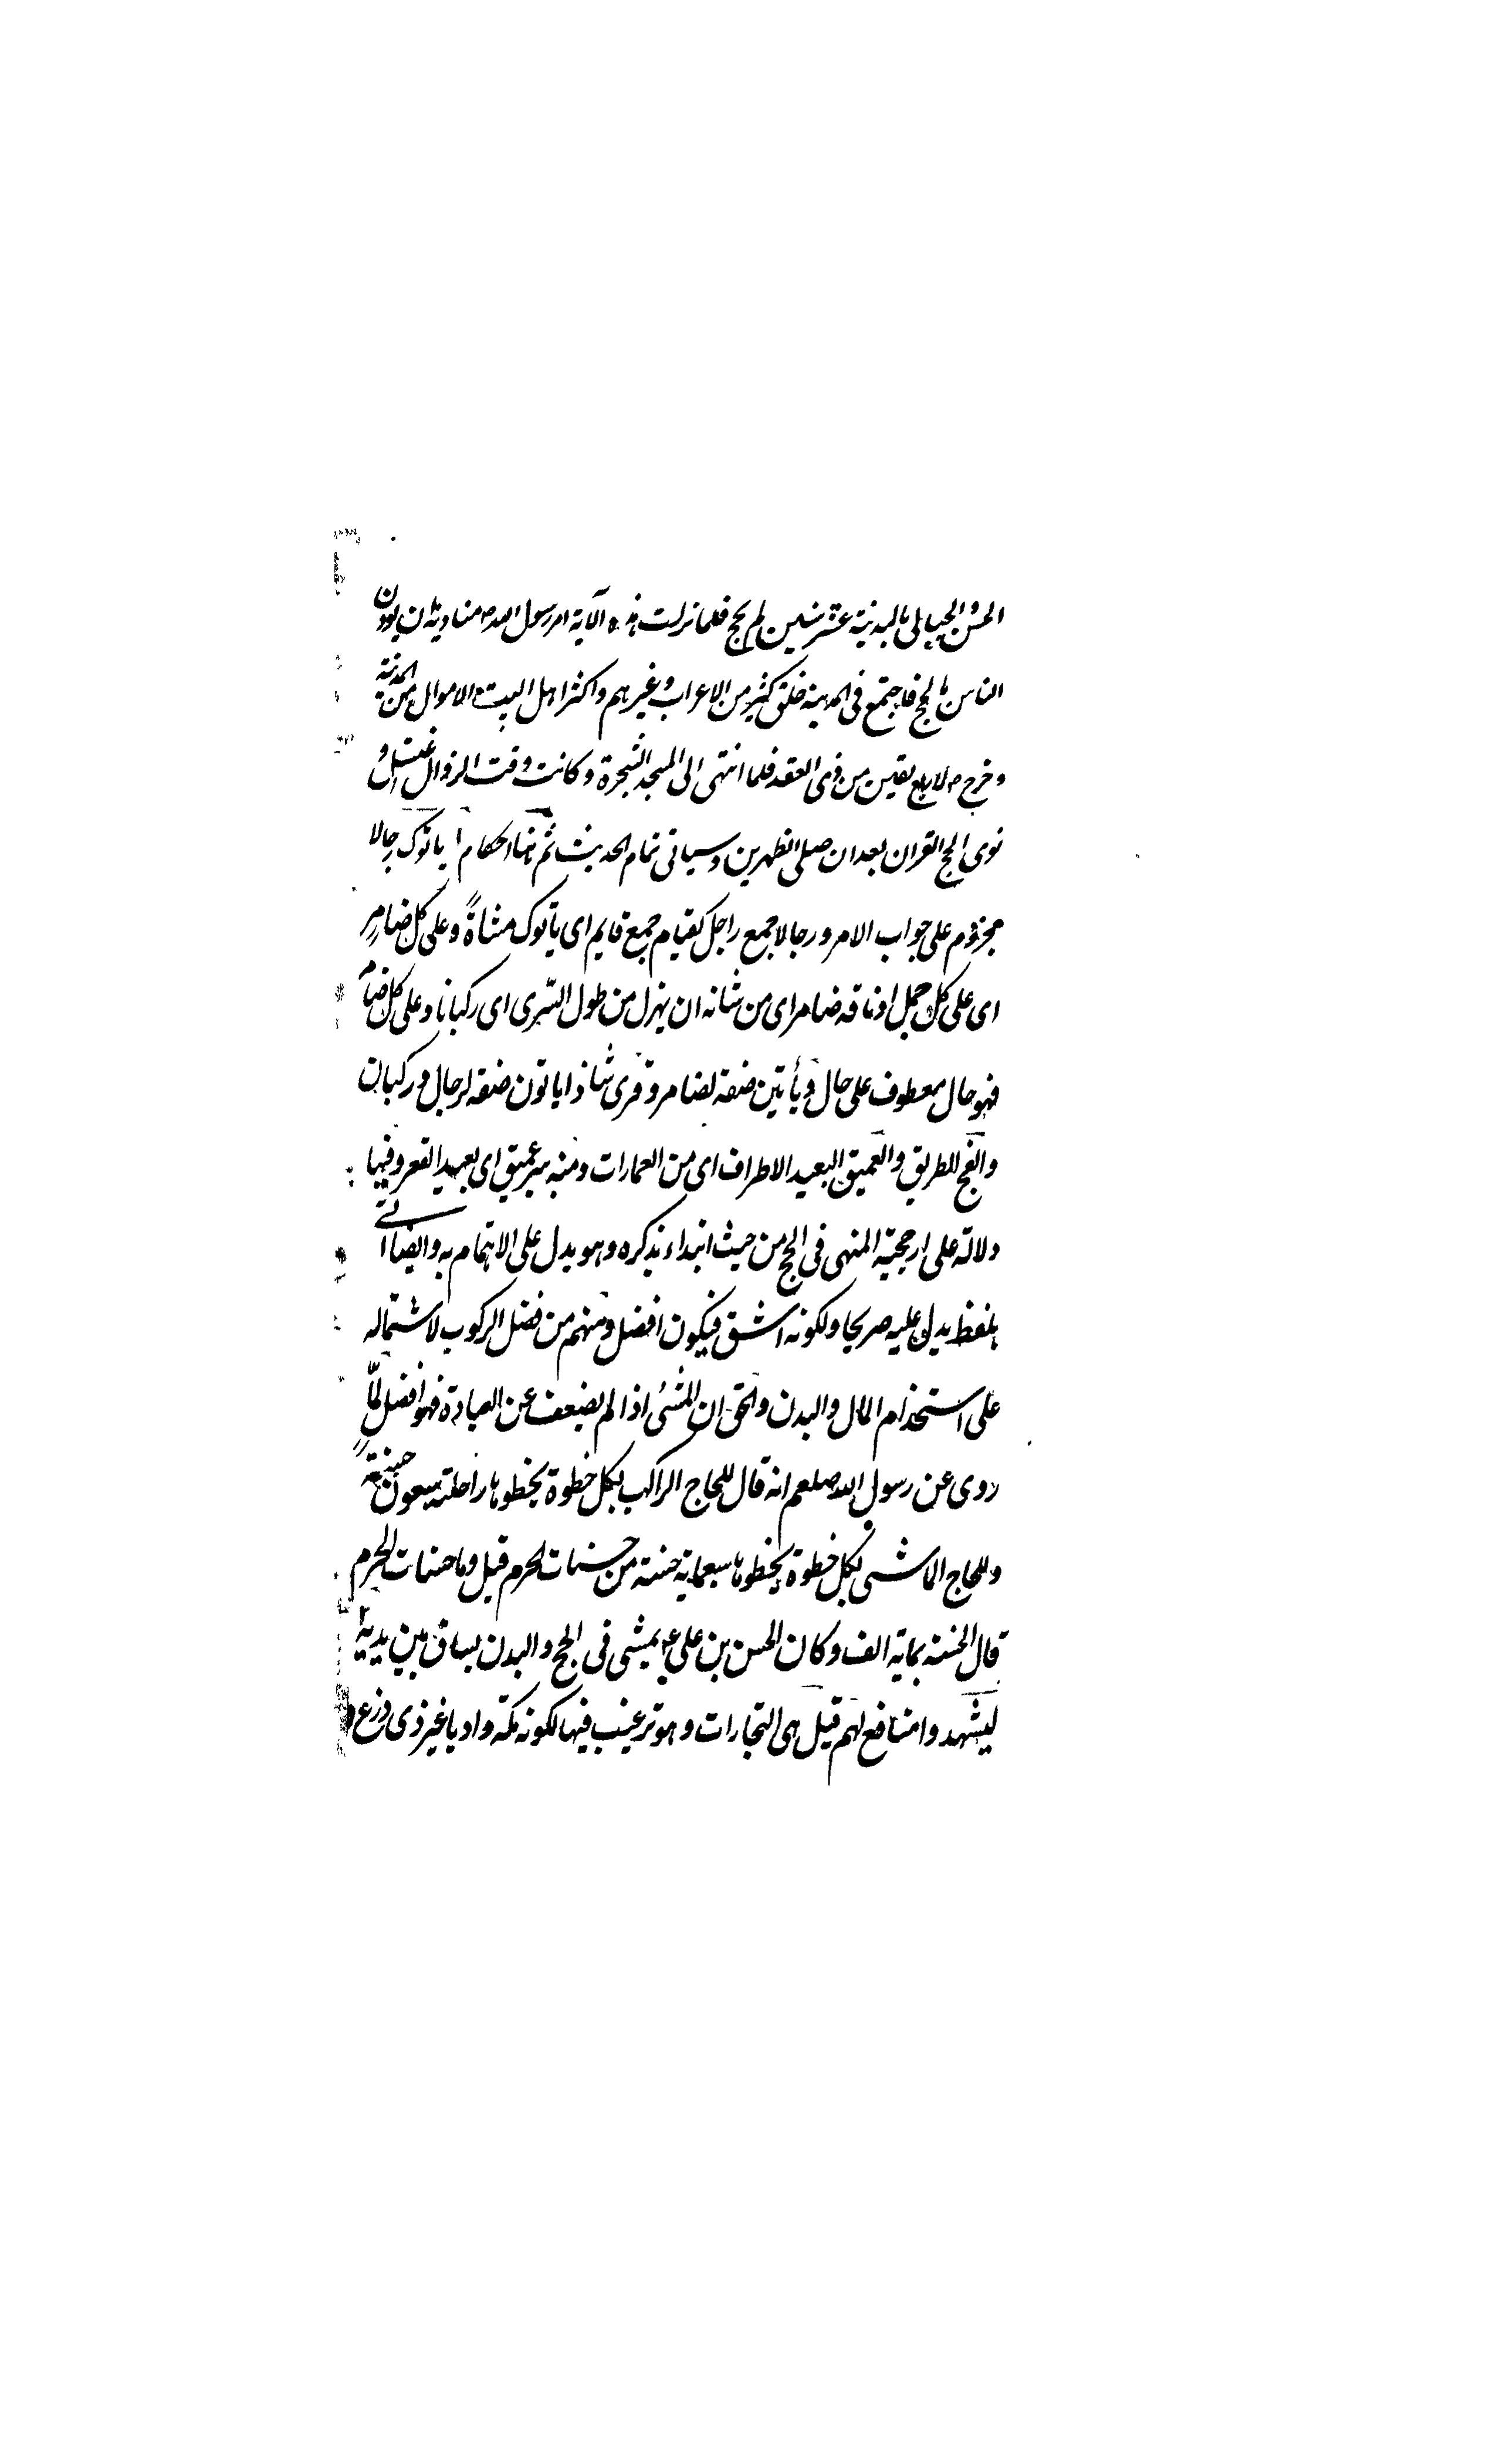 الحسن والجبائى بالمدينة عشر سنين لم يحج فلما نزلت هذه الآية امر رسول الله ص مناديه ان يوذن
الناس بالحج فاجتمع فى المدينة خلق كثير من الاعراب وغيرهم واكثر اهل البيت الاموال من المدينة
وخرج ص لاربع بقين من ذى القعد فلما انتهى الى المسجد الشجرة وكانت وقت الزوال اغتسل و
نوى الحج القران بعد ان صلى الظهرين وسياتى تمام الحديث ثم هنا احكام ا ياتوك رجالا
مجزوم على جواب الامر ورجالا جمع راجل كقيام جمع قايم اى ياتوك مشاةً وعلى كل ضامرٍ
اى على كل جمل او ناقه ضامر اى من شانه ان يهزل من طول السّرى اى ركبانا وعلى كل ضامر
فهو حال معطوف على حال ويأتين صفة لضامر وقرى شاذا ياتون صفة لرجال وركبان
والفج الطريق والعميق البعيد الاطراف اى من العمارات ومنه بير عميق اى بعيد القعر وفيها
دلالة على ارجحية المشى فى الحج من حيث ابتداء بذكره وهو يدل على الاهتمام به وايضا اتى
بلفظ يدل عليه صريحا ولكونه اشق فيكون افضل ومنهم من فضل الركوب لاشتماله
على استخدام المال والبدن والحق ان المشى اذا لم يضعف عن العبادة فهو افضل لمّا
روى عن رسول الله صلعم انه قال للحاج الراكب بكل خطوة يخطوها راحلته سبعون حسنةً
وللحاج الماشى بكل خطوة يخطوها سبعماية حسنة من حسنات الحرم قيل وما حسنات الحرم
قال الحسنة بماية الف وكان الحسن بن على ع يمشى فى الحج والبدن يساق بين يديه
ليشهدوا منافع لهم قيل هى التجارات وهو ترغيب فيها لكونه مكة واديا غير ذى زرع